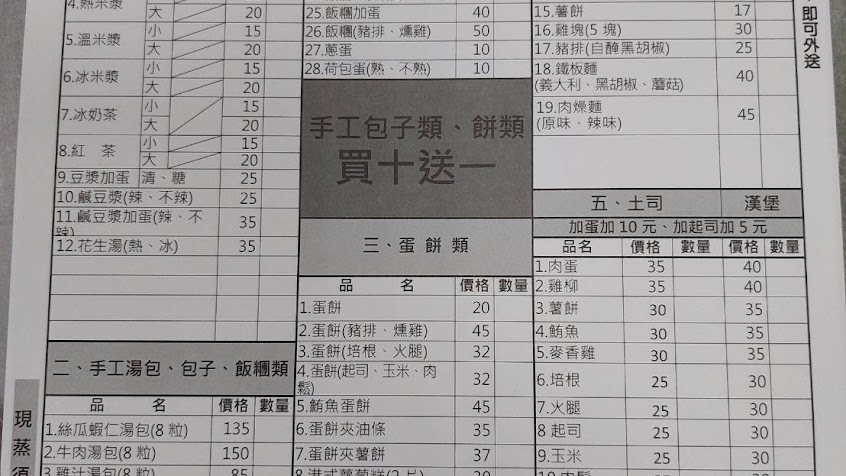 4.熱米漿
大 20
5.溫米漿 小 15
大 20
6.冰米漿 小 15
大 20
7.冰奶茶 小 15
大 20
8.紅 茶 小 15
大 20
9.豆漿加蛋 清、糖 25
10.鹹豆漿(辣、不辣) 25
11.鹹豆漿加蛋(辣、不辣) 35
12.花生湯(熱、冰) 35
二、手工湯包、包子、飯糰類
品 名 價格 數量
1.絲瓜蝦仁湯包(8 粒) 135
2.牛肉湯包(8 粒) 150
3.雞汁湯包(8 粒) 85
現蒸須
25.飯糰加蛋 40
26.飯糰(豬排、燻雞) 50
27.蔥蛋 10
28.荷包蛋(熟、不熟) 10
手工包子類、餅類
買十送一
三、蛋餅類
品 名 價格 數量
1.蛋餅 20
2.蛋餅(豬排、燻雞) 45
3.蛋餅(培根、火腿) 32
4.蛋餅(起司、玉米、肉鬆) 32
5.鮪魚蛋餅 45
6.蛋餅夾油條 35
7.蛋餅夾薯餅 37
8.港式蘿蔔糕(2 片) 30
15.薯餅 17
16.雞塊(5 塊) 30
17.豬排(自醃黑胡椒) 25
18.鐵板麵
(義大利、黑胡椒、蘑菇) 40
19.肉燥麵
(原味、辣味) 45
五、土司 漢堡
加蛋加 10 元、加起司加 5 元
品名 價格 數量 價格 數量
1.肉蛋 35 40
2.雞柳 35 40
3.薯餅 30 35
4.鮪魚 30 35
5.麥香雞 30 35
6.培根 25 30
7.火腿 25 30
8 起司 25 30
9.玉米 25 30
10.肉鬆 25 30
即可外送